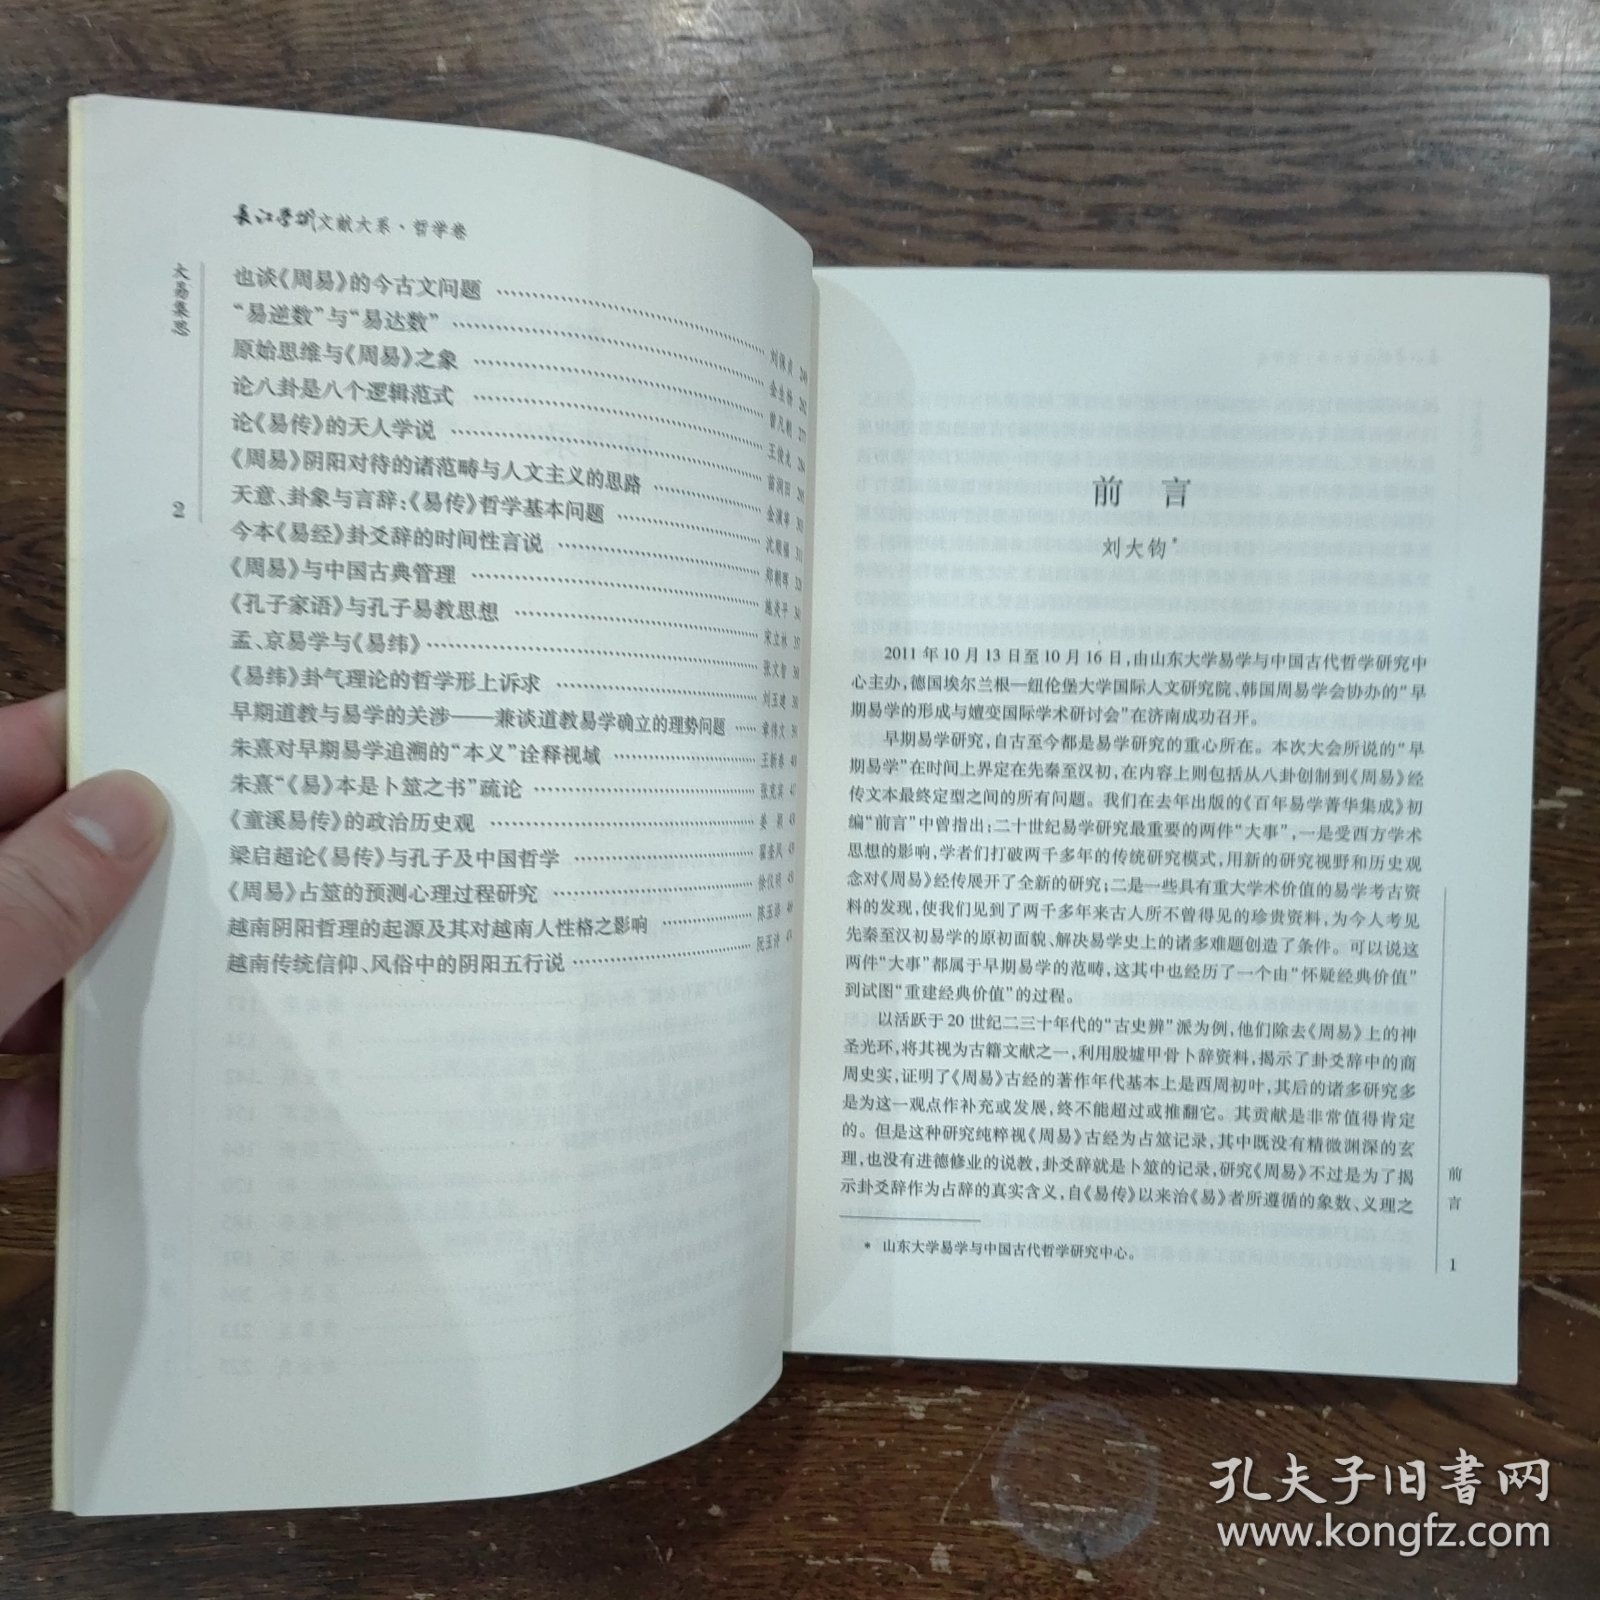 长江学术文献大系·哲学卷
大易集思
2
也谈《周易》的今古文问题 刘保贞 249
“易逆数”与“易达数” 金生杨 262
原始思维与《周易》之象 曾凡朝 277
论八卦是八个逻辑范式 王俊龙
论《易传》的天人学说 苗润田
《周易》阴阳对待的诸范畴与人文主义的思路
天意、卦象与言辞:《易传》哲学基本问题 沈顺福
今本《易经》卦爻辞的时间性言说 郑朝晖
《周易》与中国古典管理 施炎平
《孔子家语》与孔子易教思想 宋立林
孟、京易学与《易纬》 张文智
《易纬》卦气理论的哲学形上诉求 刘玉建
早期道教与易学的关涉——兼谈道教易学确立的理势问题 章伟文
朱熹对早期易学追溯的“本义”诠释视域 王新春
朱熹“《易》本是卜筮之书”疏论 张克宾
《童溪易传》的政治历史观 姜颖
梁启超论《易传》与孔子及中国哲学 翟奎凤
《周易》占筮的预测心理过程研究 徐仪明
越南阴阳哲理的起源及其对越南人性格之影响
越南传统信仰、风俗中的阴阳五行说 阮玉诗
前言
刘大钧*
2011年10月13日至10月16日,由山东大学易学与中国古代哲学研究中
心主办,德国埃尔兰根—纽伦堡大学国际人文研究院、韩国周易学会协办的“早
期易学的形成与嬗变国际学术研讨会”在济南成功召开。
早期易学研究,自古至今都是易学研究的重心所在。本次大会所说的“早
期易学”在时间上界定在先秦至汉初,在内容上则包括从八卦创制到《周易》经
传文本最终定型之间的所有问题。我们在去年出版的《百年易学菁华集成》初
编“前言”中曾指出:二十世纪易学研究最重要的两件“大事”,一是受西方学术
思想的影响,学者们打破两千多年的传统研究模式,用新的研究视野和历史观
念对《周易》经传展开了全新的研究;二是一些具有重大学术价值的易学考古资
料的发现,使我们见到了两千多年来古人所不曾得见的珍贵资料,为今人考见
先秦至汉初易学的原初面貌、解决易学史上的诸多难题创造了条件。可以说这
两件“大事”都属于早期易学的范畴,这其中也经历了一个由“怀疑经典价值”
到试图“重建经典价值”的过程。
以活跃于20世纪二三十年代的“古史辨”派为例,他们除去《周易》上的神
圣光环,将其视为古籍文献之一,利用殷墟甲骨卜辞资料,揭示了卦爻辞中的商
周史实,证明了《周易》古经的著作年代基本上是西周初叶,其后的诸多研究多
是为这一观点作补充或发展,终不能超过或推翻它。其贡献是非常值得肯定
的。但是这种研究纯粹视《周易》古经为占筮记录,其中既没有精微渊深的玄
理,也没有进德修业的说教,卦爻辞就是卜筮的记录,研究《周易》不过是为了揭
示卦爻辞作为占辞的真实含义,自《易传》以来治《易》者所遵循的象数、义理之
* 山东大学易学与中国古代哲学研究中心。
前言
1
孔夫子旧书网
www.kongfz.com